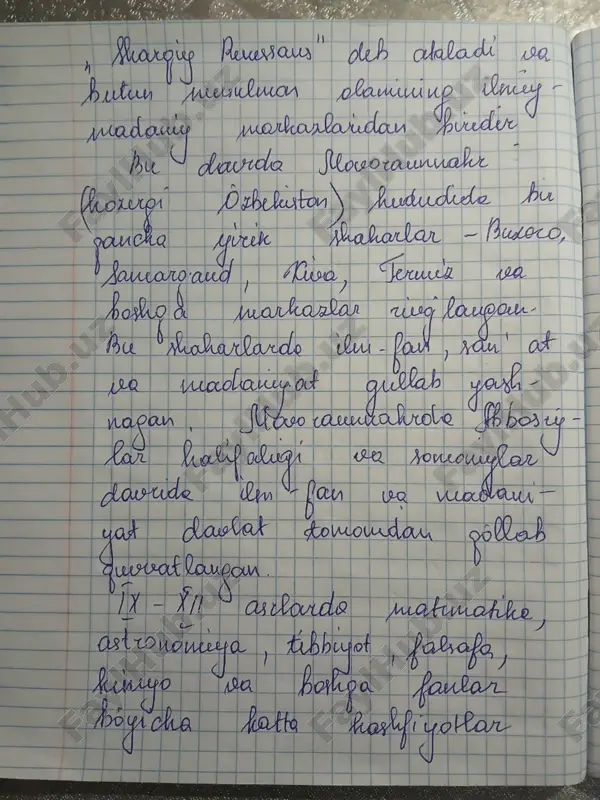 „Sharqiy Renessans" deb ataladi va
butun musulmon olamining ilmiy-
madaniy markazlaridan biridir
Bu davrda Movoraunnahr
(hozirgi Özbekiston) hududida bir
qancha yirik shaharlar – Buxoro,
Samarqand, Xiva, Termiz va
boshqa markazlar rivojlangan.
Bu shaharlarda ilm-fan, san'at
va madaniyat gullab yash-
nagan. Movoraunnahrda Abbosiy-
lar halifaligi va somoniylar
davrida ilm-fan va madani-
yat davlat tomonidan qöllab
quvvatlangan.
IX – XII asrlarda matimatika,
astronomiya, tibbiyot, falsafa,
kimyo va boshqa fanlar
böyicha katta kashfiyotlar
FaylHub.uz